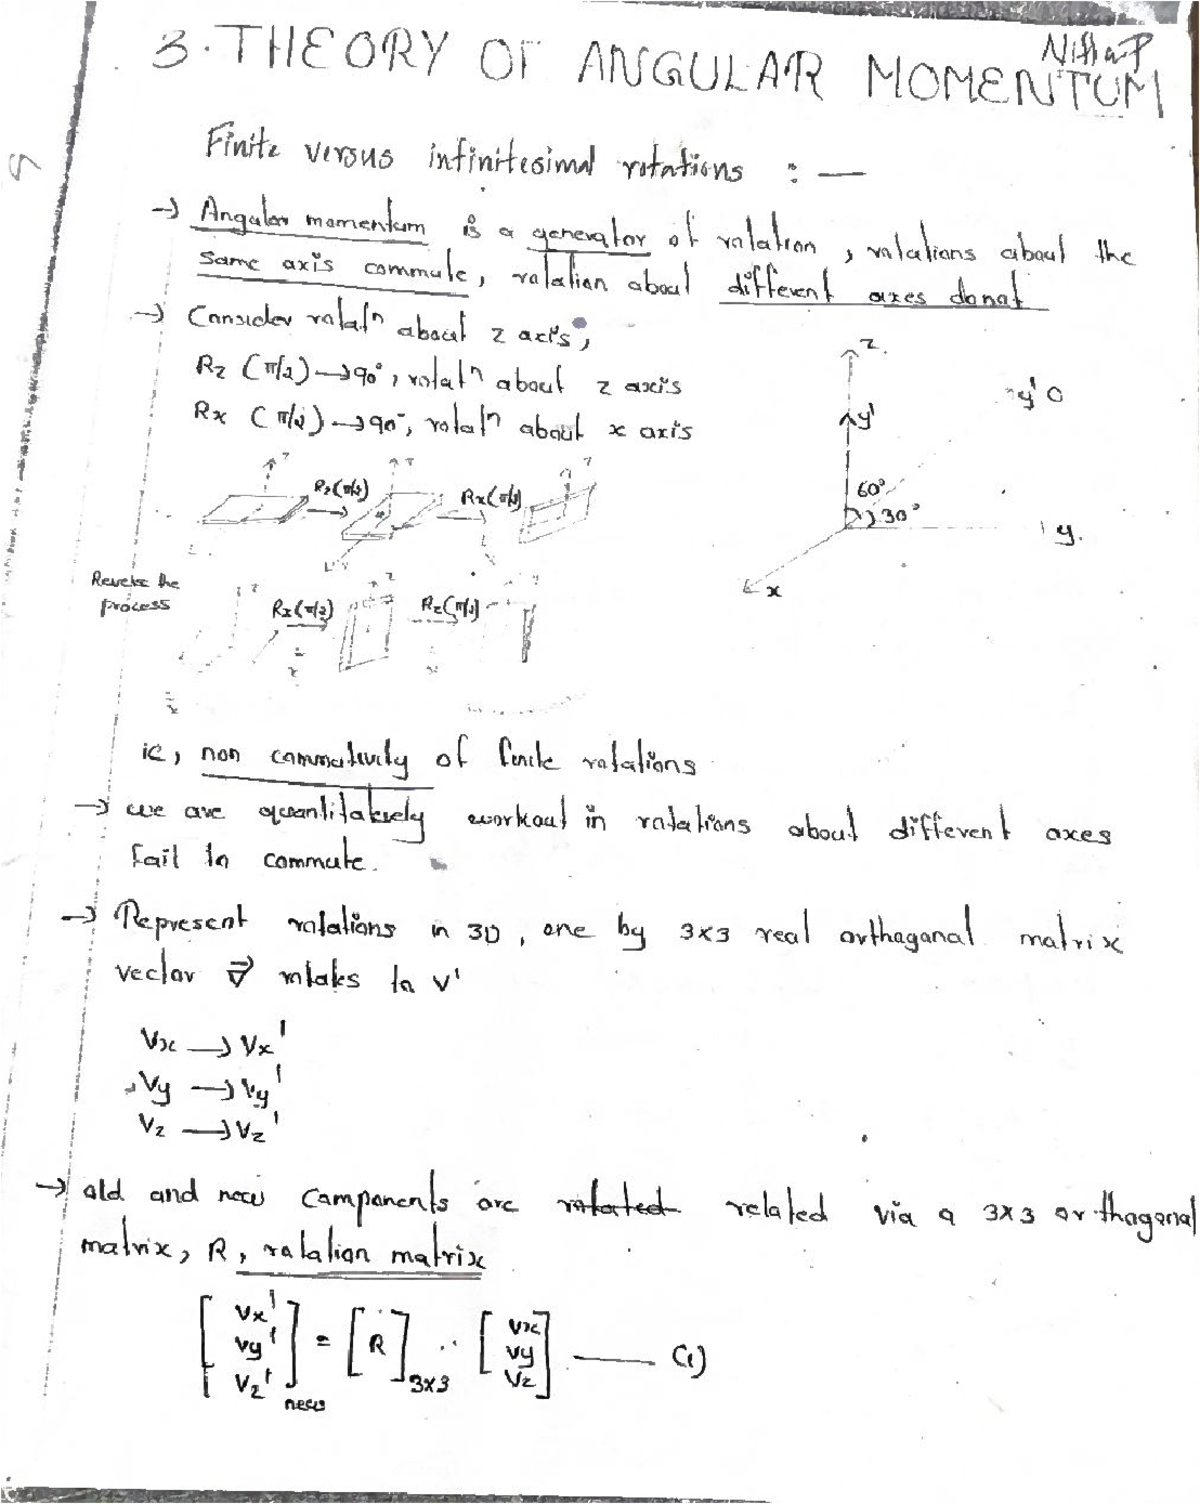 3. THEORY OF ANGULAR MOMENTUM
Finite versus infinitesimal rotations : —
→ Angular momentum is a generator of rotation, rotations about the
same axis commute, rotation about different axes donot
→ Consider rotatⁿ about z axis,
Rz (π/2) → 90°, rotatⁿ about z axis
Rx (π/2) → 90°, rotatⁿ about x axis
z
y'
y'
60°
30°
y.
x
Rz(π/2)
Rx(π/2)
Reverse the
process
Rx(π/2)
Rz(π/2)
ie, non commutivity of finite rotations
→ we are quantitatively workout in rotations about different axes
fail to commute.
→ Represent rotations in 3D, one by 3×3 real orthogonal matrix
vector V⃗ rotates to V'
Vx → Vx'
Vy → Vy'
Vz → Vz'
→ old and new components are rotated related via a 3×3 orthogonal
matrix, R, rotation matrix
[Vx' Vy' Vz']new = [R]3×3 [Vx Vy Vz] —— (1)